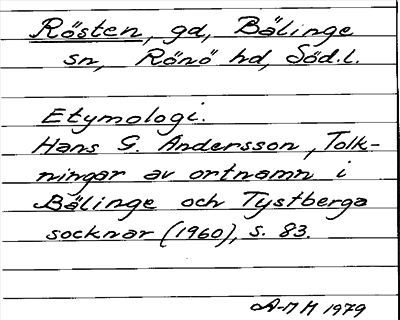 Rösten, gd, Bälinge
sn, Rönö hd, Söd.l.
Etymologi.
Hans G. Andersson, Tolk-
ningar av ortnamn i
Bälinge och Tystberga
socknar (1960), s. 83.
A-M H 1979